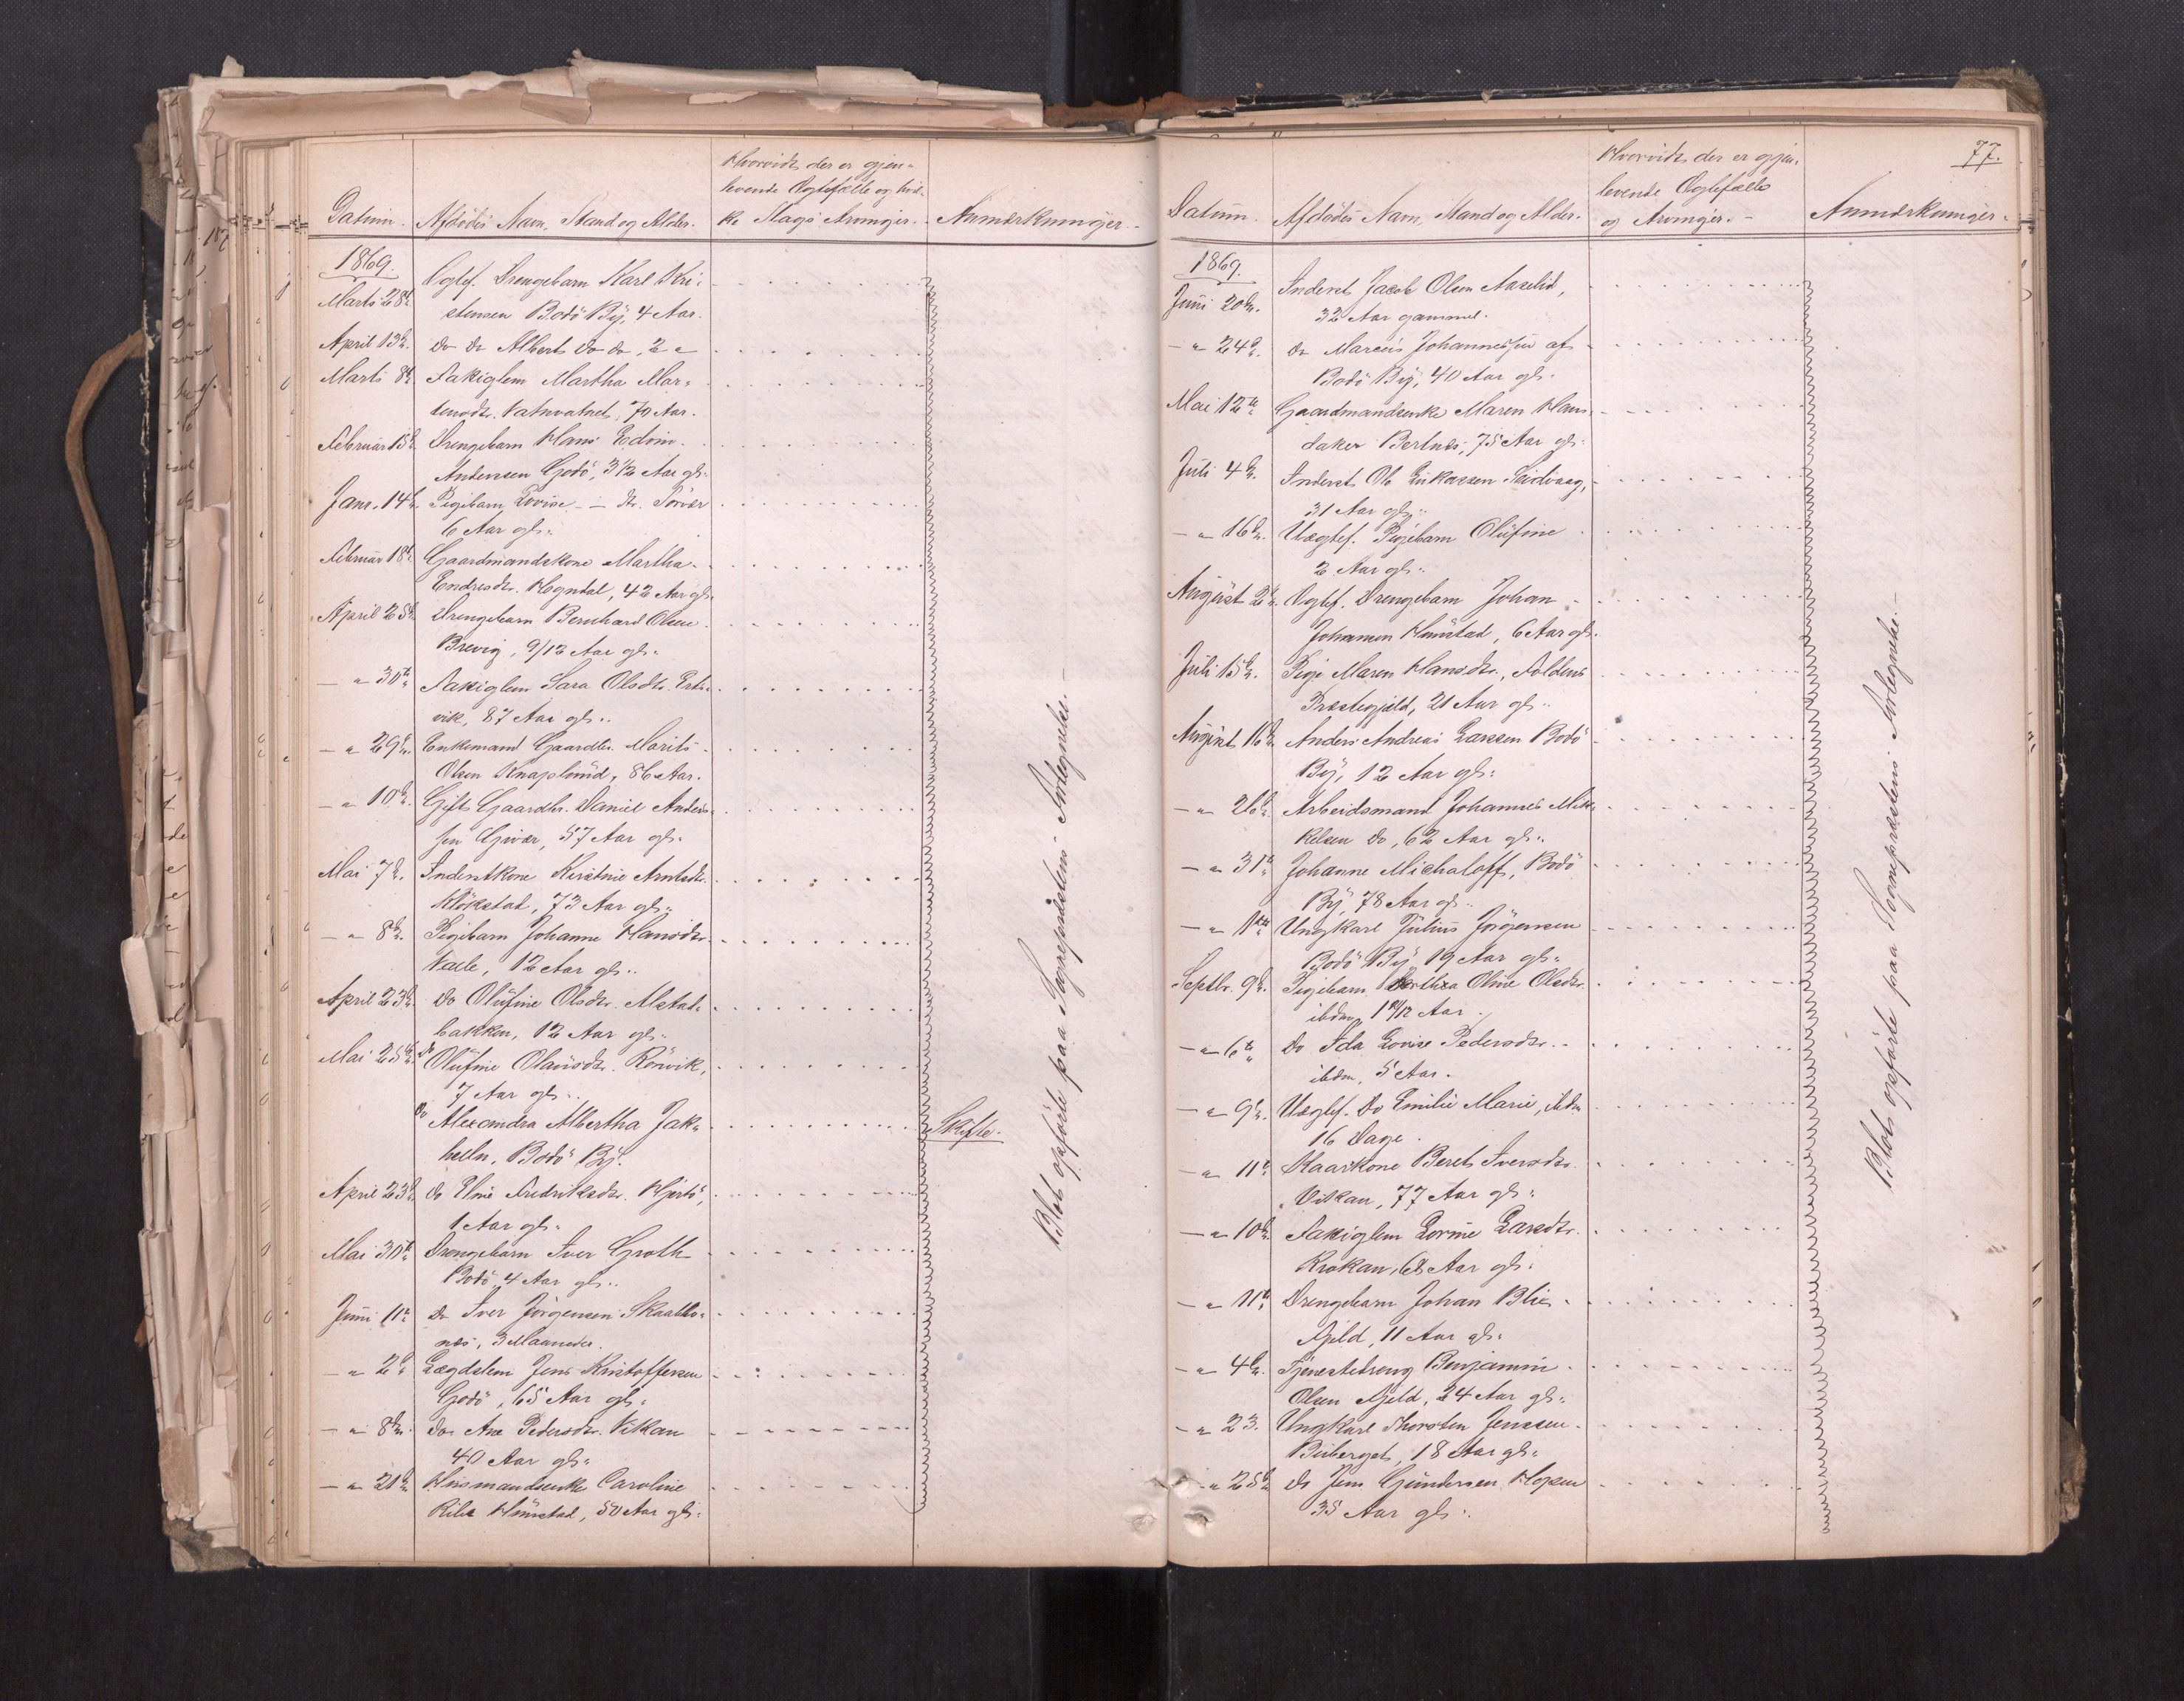 Datum.
Afdødes Navn, Stand og Alder.
Hvorvidt der er gjen-
levende Ægtefælle og hvil-
ke Slags Arvinger.
Anmærkninger.
1869.
Marts 28de Ægtef. Drengebarn Karl Kri-
stensen Bodö By, 4 Aar.
April 13de do do Albert do do, 2 "
Marts 8de Fatiglem Martha Mar-
tensdtr. Vatnvatnet, 70 Aar.
Februar 15de Drengebarn Hans Edvin
Andersen Godö, 3 1/2 Aar gl.
Janr. 14de Pigebarn Lovise - - dtr. Sörvær
6 Aar gl.
Februar 18de Gaardmandskone Martha
Endresdtr. Hogndal, 42 Aar gl.
April 25de Drengebarn Bernhard Olsen
Brevig, 9/12 Aar gl.
- " 30te Fatiglem Sara Olsdtr. Ert-
vik, 87 Aar gl.
- " 29de Enkemand Gaardbr. Morits
Olsen Knaplund, 86 Aar.
- " 10de Gift Gaardbr. Daniel Anders-
sen Givær, 57 Aar gl.
Mai 7de Inderstkone Kirstine Arntsdtr.
Klökstad, 73 Aar gl.
- " 8de Pigebarn Johanne Hansdtr.
Valle, 12 Aar gl.
April 23de do Olüfine Olsdtr. Alstad-
bakken, 12 Aar gl.
Mai 25de do Olüfine Olausdtr. Rörvik,
7 Aar gl.
do Alexandra Albertha Jak-
helln, Bodö By. Skifte.
April 23de do Eline Fredriksdtr. Hjertö,
1 Aar gl.
Mai 30te Drengebarn Iver Groth
Bodö, 4 Aar gl.
Juni 11te do Iver Jörgensen Skaalbo-
næs, 3 Maaneder.
- " 2de Lægdslem Jens Kristoffersen
Godö, 65 Aar gl.
- " 8de do Ane Pedersdtr. Vikan
40 Aar gl.
- " 21de Husmandsenke Caroline
Hünstad, 50 Aar gl.
Blot opførte paa Sogneprestens Fortegnelse.
77.
Datum.
Afdødes Navn, Stand og Alder.
Hvorvidt der er gjen-
levende Ægtefælle
og Arvinger.
Anmærkninger.
1869.
Juni 20de Inderst Jacob Olsen Aaselid,
32 Aar gammel.
- " 24de do Marcus Johannessen af
Bodö By, 40 Aar gl.
Mai 12te Gaardmandsenke Maren Hans-
daker Bertnæs, 75 Aar gl.
Juli 4de Inderst Ole Erikassen Seidvaag,
31 Aar gl.
- " 16de Uægtef. Pigebarn Olüfine
2 Aar gl.
August 2de Ægtef. Drengebarn Johan
Johansen Hünstad, 6 Aar gl.
Juli 15de Pige Maren Hansdtr., Foldens
Præstegjeld, 21 Aar gl.
August 16de Anders Andreas Larssen Bodö
By, 12 Aar gl.
- " 26de Arbeidsmand Johannes Mik-
kelsen do, 62 Aar gl.
- " 31te Johanne Michaloff, Bodö
By, 78 Aar gl.
- " 1ste Ungkarl Julius Jörgensen
Bodö By, 19 Aar gl.
Septbr. 9de Pigebarn Oline Olsdtr.
ibdm, Aar.
- " 6te do Ida Lovise Pedersdtr.
ibdm, 5 Aar.
- " 9de Uægtef. do Emilie Marie, ibdm
16 Dage.
- " 11te Kaarkone Beret Iversdtr.
Vikan, 77 Aar gl.
- " 10de Fatiglem Larsdtr.
Krokan, 68 Aar gl.
- " 11te Drengebarn Johan Blix
Fjeld, 11 Aar gl.
- " 4de Tjenestedreng Benjamin
Olsen Fjeld, 24 Aar gl.
- " 23. Ungkarl Thorsten Jenssen
18 Aar gl.
- " 25de do Jens Gundersen Hopen
35 Aar gl.
Blot opførte paa Sogneprestens Fortegnelse.